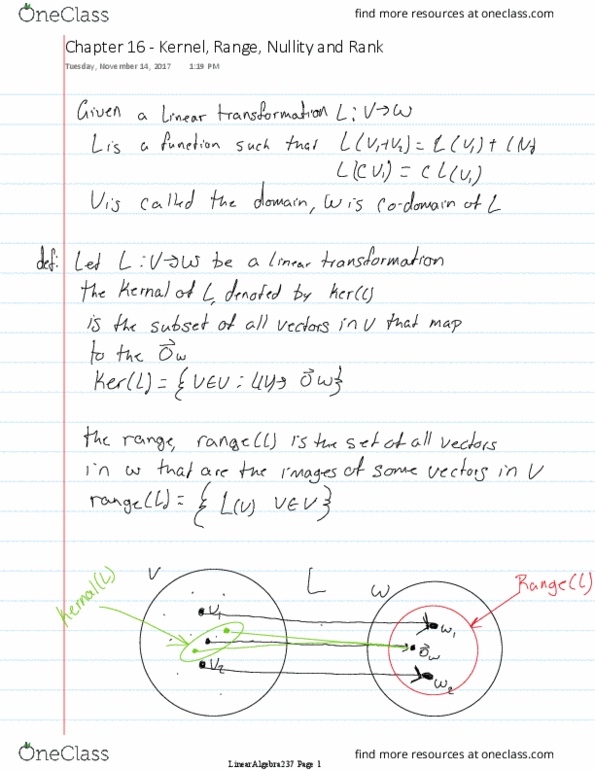 OneClass
find more resources at oneclass.com
Chapter 16 - Kernel, Range, Nullity and Rank
Tuesday, November 14, 2017 1:19 PM
Given a Linear transformation L: V→W
L is a function such that L(V₁+V₂) = L(V₁) +
L(CV₁) = C L(V₁)
V is called the domain, W is co-domain of L
def: Let L: V→W be a linear transformation
the Kernal of L, denoted by ker(L)
is the subset of all vectors in V that map
to the 0⃗w
Ker(L) = { V∈V : L(V)→ 0⃗w}
the range, range(L) is the set of all vectors
in w that are the images of some vectors in V
range(L) = { L(v) V∈V}
V L W Range(L)
Kernal(L)
V₁ w₁
0⃗w
V₂ w₂
OneClass
find more resources at oneclass.com
LinearAlgebra237 Page 1